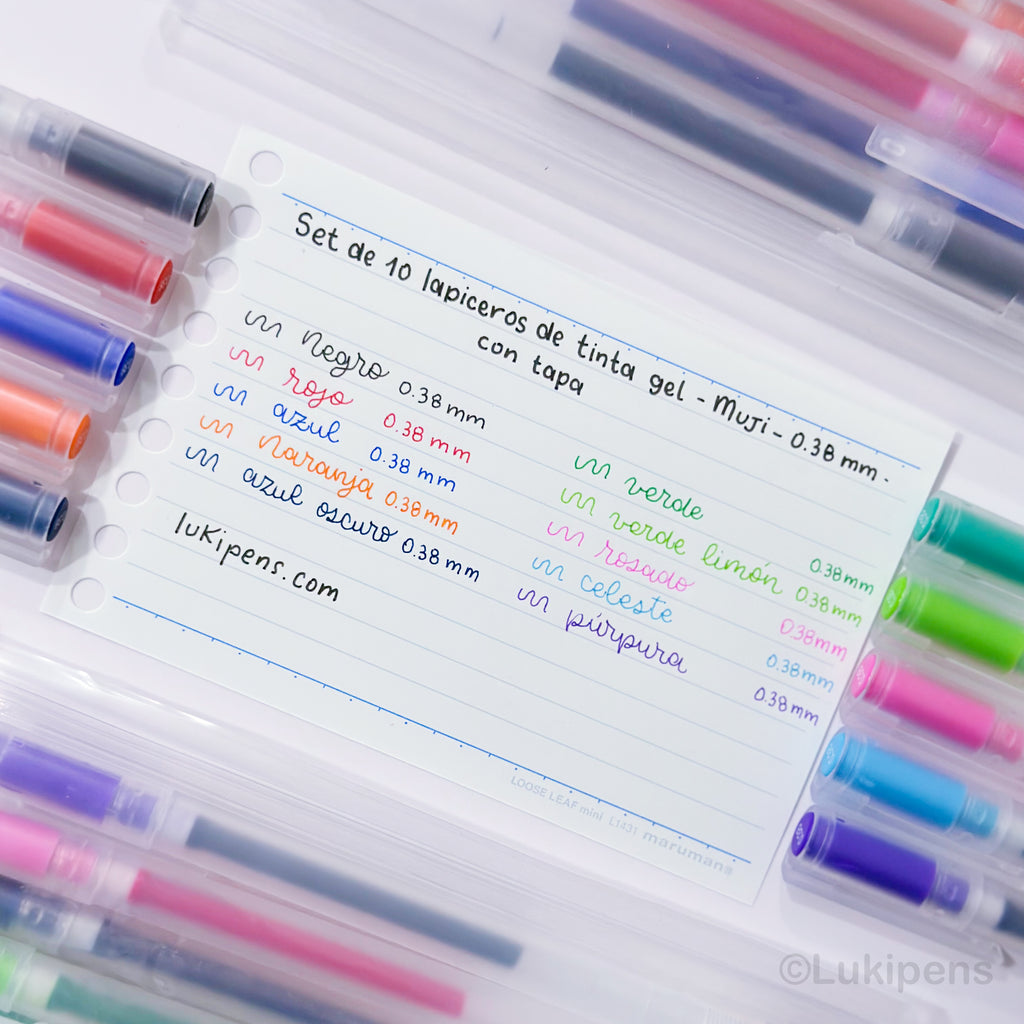 Set de 10 lapiceros de tinta gel - MUJI - 0.38 mm.
con tapa
negro 0.38 mm
rojo 0.38 mm
azul 0.38 mm
naranja 0.38 mm
azul oscuro 0.38 mm
lukipens.com
verde 0.38 mm
verde limón 0.38 mm
rosado 0.38 mm
celeste 0.38 mm
púrpura 0.38 mm
LOOSE LEAF mini L1431 maruman
©Lukipens